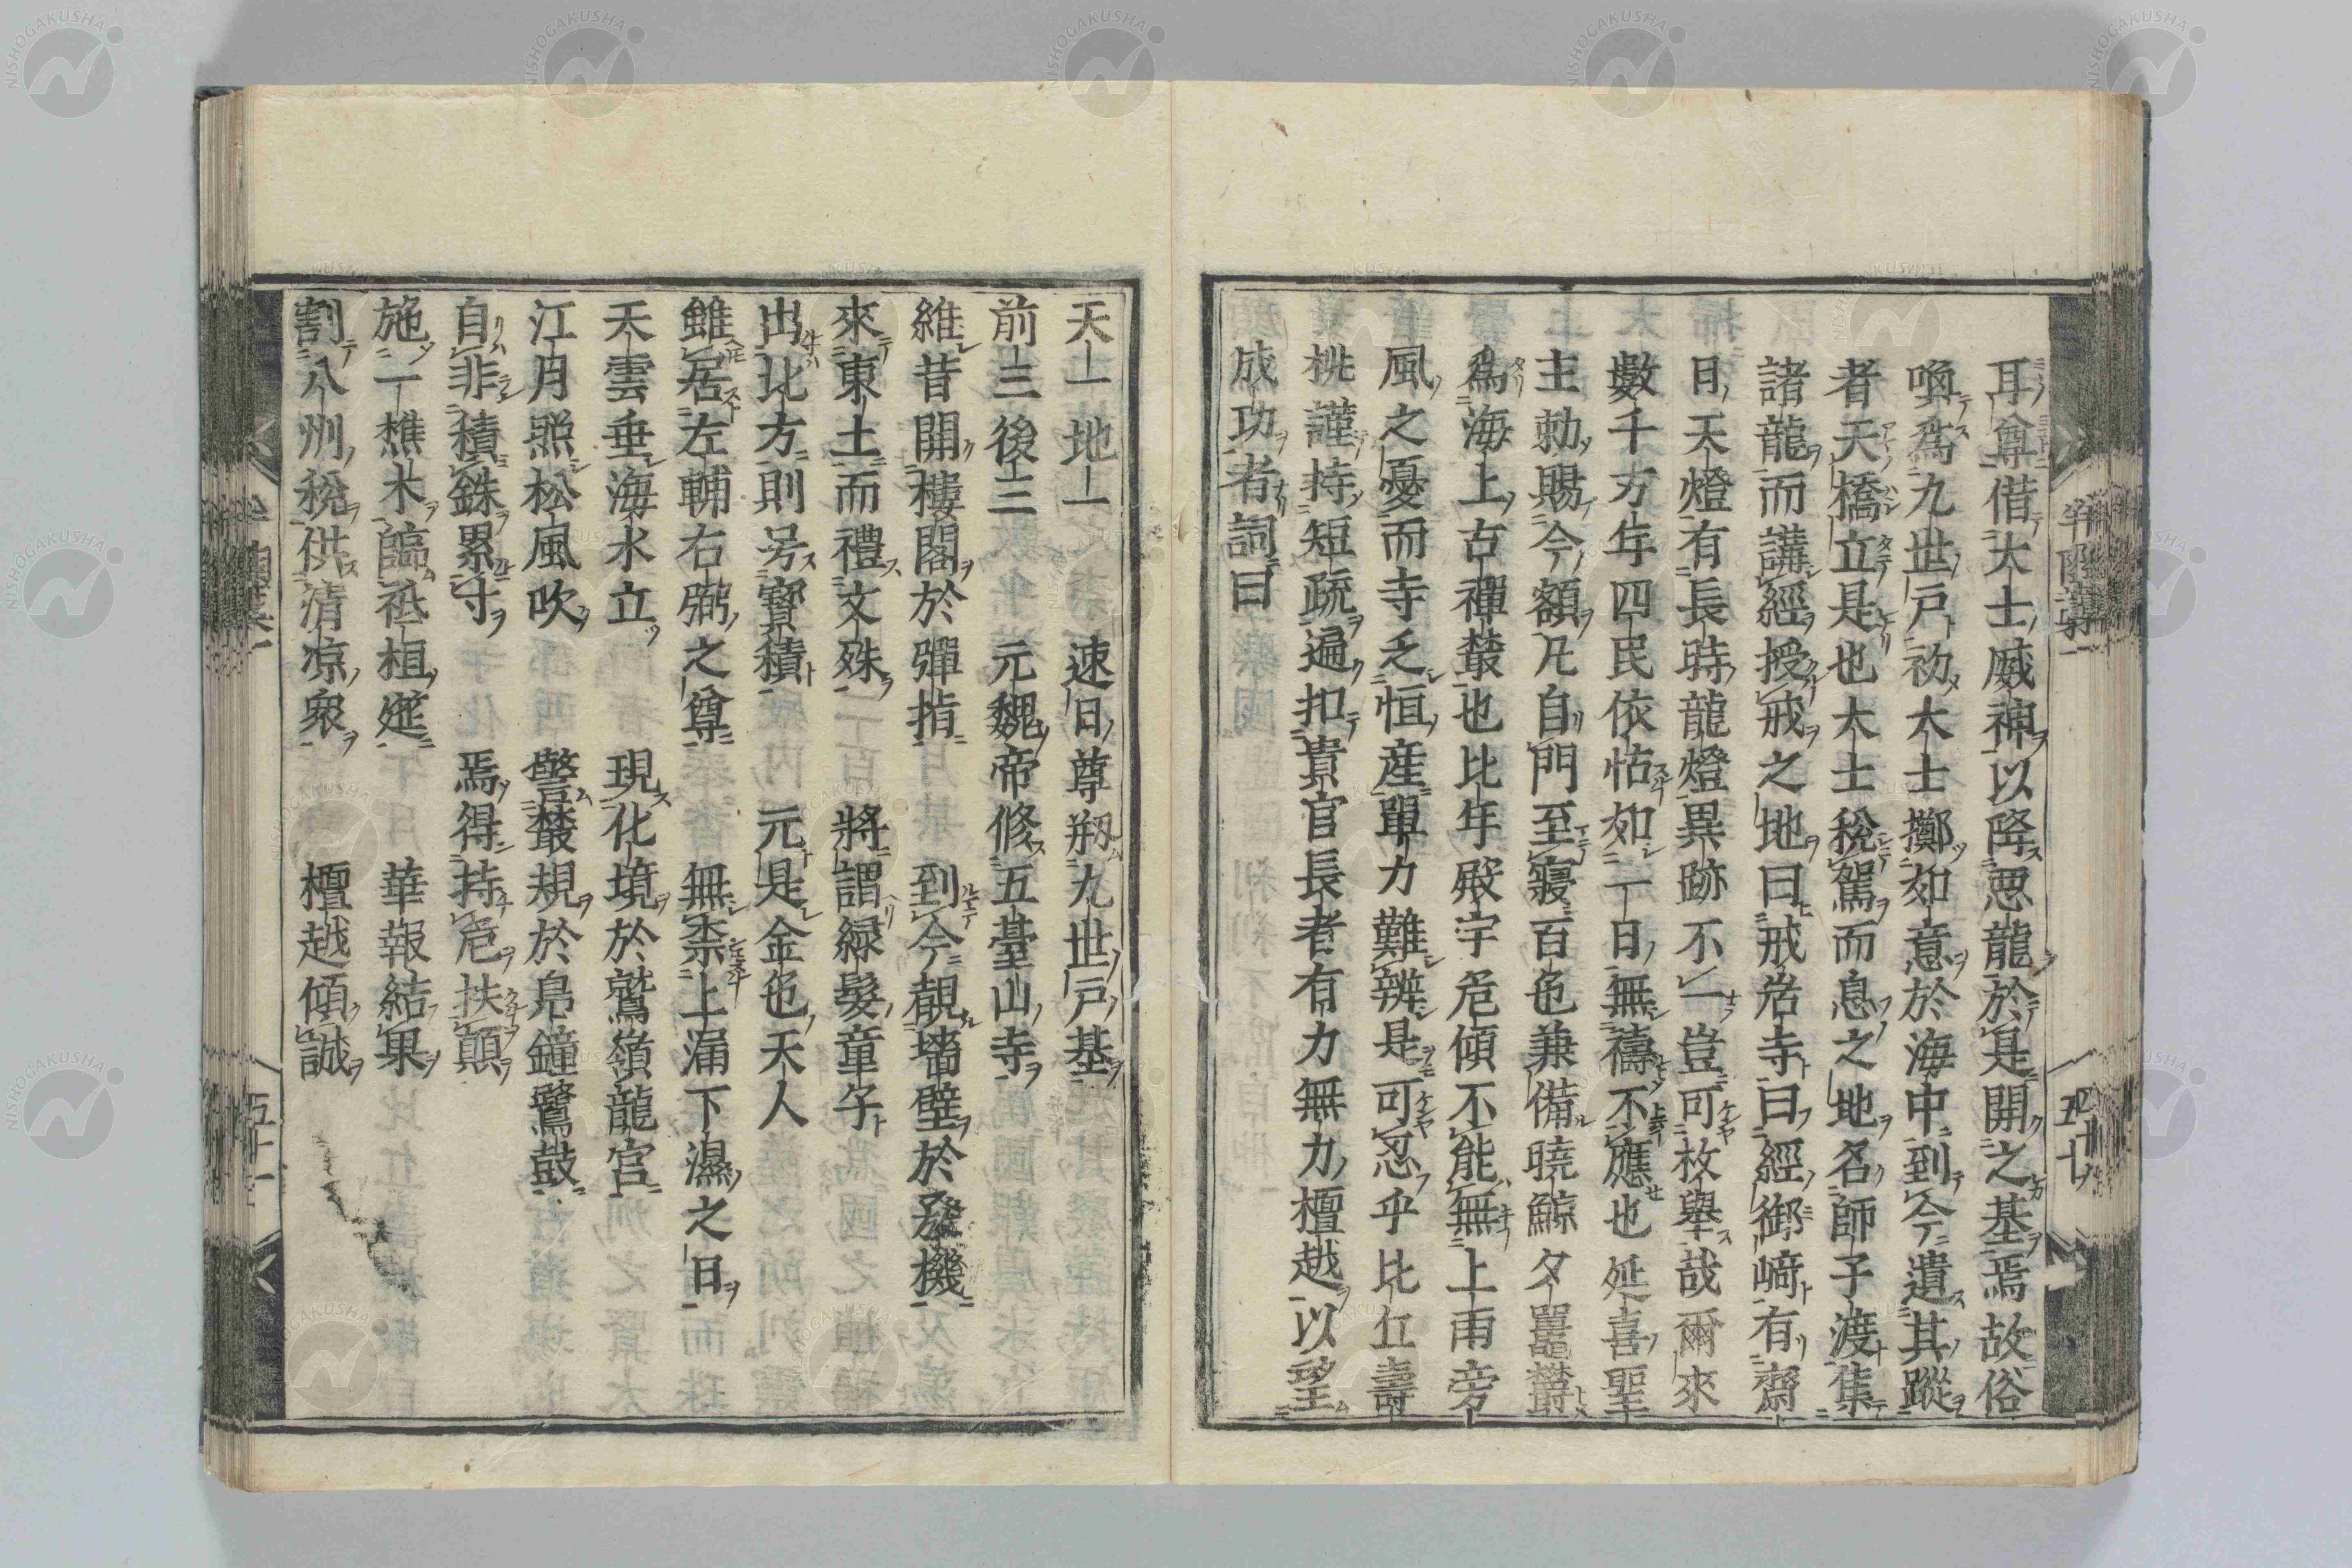 耳尊借大士威神以降悪龍於是開之基焉故俗
喚爲九世戸初大士擲如意於海中到今遺其蹤
者天橋立是也大士稅駕而息之地名師子渡集
諸龍而講經授戒之地曰戒岩寺曰經御﨑有齋
日天燈有長時龍燈異跡不一豈可枚舉哉爾來
數千万年四民依怙如一日無禱不應也延喜聖
主勅賜今額凢自門至寢百色兼備曉鯨夕鼉欝
爲海上古禪藂也比年殿宇危傾不能無上雨旁
風之憂而寺乏恒産單力難辨是可忍乎比丘壽
桃謹持短疏遍扣貴官長者有力無力檀越以望
成功者詞曰
天一地一 速日尊剏九世戸基
前三後三 元魏帝修五臺山寺
維昔開樓閣於彈指 到今覩墻壁於發機
來東土而禮文殊 將謂緑髮童子
出比方則号寶積 元是金色天人
雖居左輔右弼之尊 無柰上漏下濕之日
天雲垂海水立 現化境於鷲嶺龍宮
江月照松風吹 警藂規於鳧鐘鷺鼓
自非積銖累寸 焉得持危扶顛
施一樵木臨祗桓筵 華報結果
割八州稅供清凉衆 檀越傾誠
五十
五十一
NISHOGAKUSHA